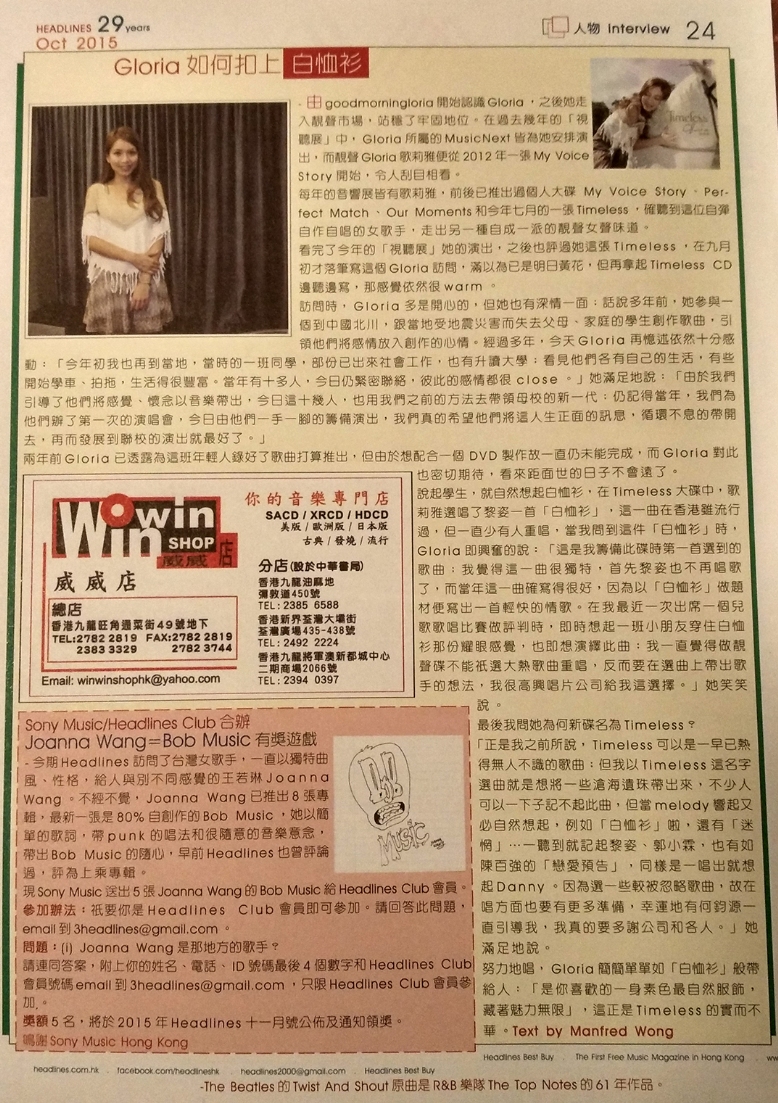 HEADLINES 29 years
Oct 2015
人物 Interview 24
Gloria 如何扣上 白恤衫
- 由 goodmorningloria 開始認識 Gloria，之後她走
入靚聲市場，站穩了牢固地位。在過去幾年的「視
聽展」中，Gloria 所屬的 MusicNext 皆為她安排演
出，而靚聲 Gloria 歌莉雅便從 2012 年一張 My Voice
Story 開始，令人刮目相看。
每年的音響展皆有歌莉雅，前後已推出過個人大碟 My Voice Story、Per-
fect Match、Our Moments 和今年七月的一張 Timeless，確聽到這位自彈
自作自唱的女歌手，走出另一種自成一派的靚聲女聲味道。
看完了今年的「視聽展」她的演出，之後也評過她這張 Timeless，在九月
初才落筆寫這個 Gloria 訪問，滿以為已是明日黃花，但再拿起 Timeless CD
邊聽邊寫，那感覺依然很 warm。
訪問時，Gloria 多是開心的，但她也有深情一面：話說多年前，她參與一
個到中國北川，跟當地受地震災害而失去父母、家庭的學生創作歌曲，引
領他們將感情放入創作的心情。經過多年，今天 Gloria 再憶述依然十分感
動：「今年初我也再到當地，當時的一班同學，部份已出來社會工作，也有升讀大學；看見他們各有自己的生活，有些
開始學車、拍拖，生活得很豐富。當年有十多人，今日仍緊密聯絡，彼此的感情都很 close。」她滿足地說：「由於我們
引導了他們將感覺、懷念以音樂帶出，今日這十幾人，也用我們之前的方法去帶領母校的新一代；仍記得當年，我們為
他們辦了第一次的演唱會，今日由他們一手一腳的籌備演出，我們真的希望他們將這人生正面的訊息，循環不息的帶開
去，再而發展到聯校的演出就最好了。」
兩年前 Gloria 已透露為這班年輕人錄好了歌曲打算推出，但由於想配合一個 DVD 製作故一直仍未能完成，而 Gloria 對此
也密切期待，看來距面世的日子不會遠了。
說起學生，就自然想起白恤衫，在 Timeless 大碟中，歌
莉雅選唱了黎姿一首「白恤衫」，這一曲在香港雖流行
過，但一直少有人重唱，當我問到這件「白恤衫」時，
Gloria 即興奮的說：「這是我籌備此碟時第一首選到的
歌曲；我覺得這一曲很獨特，首先黎姿也不再唱歌
了，而當年這一曲確寫得很好，因為以「白恤衫」做題
材便寫出一首輕快的情歌。在我最近一次出席一個兒
歌歌唱比賽做評判時，即時想起一班小朋友穿住白恤
衫那份耀眼感覺，也即想演繹此曲；我一直覺得做靚
聲碟不能祇選大熱歌曲重唱，反而要在選曲上帶出歌
手的想法，我很高興唱片公司給我這選擇。」她笑笑
說。
最後我問她為何新碟名為 Timeless？
「正是我之前所說，Timeless 可以是一早已熟
得無人不識的歌曲；但我以 Timeless 這名字
選曲就是想將一些滄海遺珠帶出來，不少人
可以一下子記不起此曲，但當 melody 響起又
必自然想起，例如「白恤衫」啦，還有「迷
惘」…一聽到就記起黎姿、郭小霖，也有如
陳百強的「戀愛預告」，同樣是一唱出就想
起 Danny。因為選一些較被忽略歌曲，故在
唱方面也要有更多準備，幸運地有何鈞源一
直引導我，我真的要多謝公司和各人。」她
滿足地說。
努力地唱，Gloria 簡簡單單如「白恤衫」般帶
給人：「是你喜歡的一身素色最自然服飾，
藏著魅力無限」，這正是 Timeless 的實而不
華。Text by Manfred Wong
Timeless
Gloria
Winwin
SHOP
威威店
威威店
總店
香港九龍旺角通菜街49號地下
TEL:2782 2819 FAX:2782 2819
2383 3329 2782 3744
Email: winwinshophk@yahoo.com
你的音樂專門店
SACD / XRCD / HDCD
美版 / 歐洲版 / 日本版
古典 / 發燒 / 流行
分店(設於中華書局)
香港九龍油麻地
彌敦道450號
TEL: 2385 6588
香港新界荃灣大壩街
荃灣廣場435-438號
TEL: 2492 2224
香港九龍將軍澳新都城中心
二期商場2066號
TEL: 2394 0397
Sony Music/Headlines Club 合辦
Joanna Wang=Bob Music 有獎遊戲
- 今期 Headlines 訪問了台灣女歌手，一直以獨特曲
風、性格，給人與別不同感覺的王若琳 Joanna
Wang。不經不覺，Joanna Wang 已推出 8 張專
輯，最新一張是 80% 自創作的 Bob Music，她以簡
單的歌詞，帶 punk 的唱法和很隨意的音樂意念，
帶出 Bob Music 的隨心，早前 Headlines 也曾評論
過，評為上乘專輯。
BOB
Music
現 Sony Music 送出 5 張 Joanna Wang 的 Bob Music 給 Headlines Club 會員。
參加辦法：祇要你是 Headlines Club 會員即可參加。請回答此問題，
email 到 3headlines@gmail.com。
問題：(i) Joanna Wang 是那地方的歌手？
請連同答案，附上你的姓名、電話、ID 號碼最後 4 個數字和 Headlines Club
會員號碼 email 到 3headlines@gmail.com，只限 Headlines Club 會員參
加。
獎額 5 名，將於 2015 年 Headlines 十一月號公佈及通知領獎。
鳴謝 Sony Music Hong Kong
Headlines Best Buy . The First Free Music Magazine in Hong Kong .
headlines.com.hk . facebook.com/headlineshk . headlines2000@gmail.com . Headlines Best Buy
-The Beatles 的 Twist And Shout 原曲是 R&B 樂隊 The Top Notes 的 61 年作品。